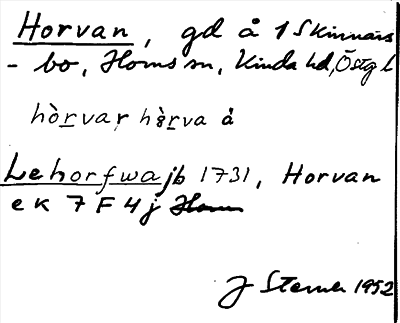 Horvan, gd å 1 Skinnars
- bo, Horns sn, Kinda hd, Östg l
hòrvar hòrva å
Lehorfwa jb 1731, Horvan
ek 7 F 4 j
J Sterner 1952